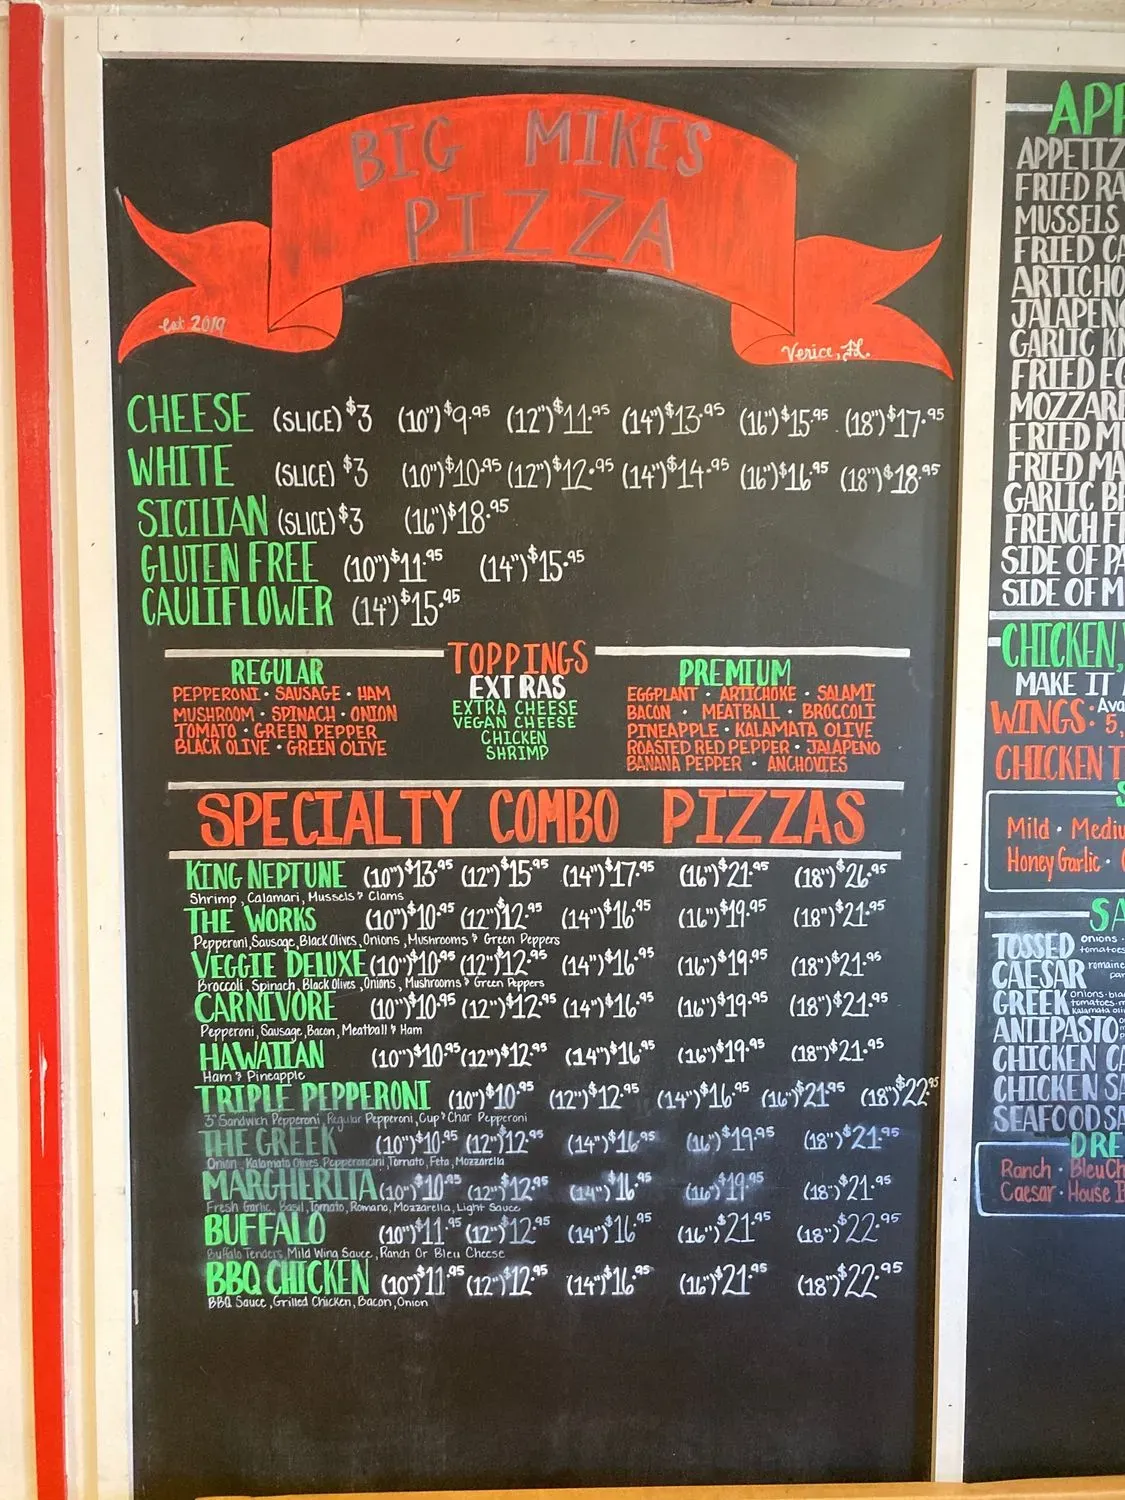 BIG MIKES
PIZZA
est 2019
Venice, FL.
CHEESE (SLICE) $3 (10") $9.95 (12") $11.95 (14") $13.95 (16") $15.95 (18") $17.95
WHITE (SLICE) $3 (10") $10.95 (12") $12.95 (14") $14.95 (16") $16.95 (18") $18.95
SICILIAN (SLICE) $3 (16") $18.95
GLUTEN FREE (10") $11.95 (14") $15.95
CAULIFLOWER (14") $15.95
TOPPINGS
REGULAR
PEPPERONI · SAUSAGE · HAM
MUSHROOM · SPINACH · ONION
TOMATO · GREEN PEPPER
BLACK OLIVE · GREEN OLIVE
EXTRAS
EXTRA CHEESE
VEGAN CHEESE
CHICKEN
SHRIMP
PREMIUM
EGGPLANT · ARTICHOKE · SALAMI
BACON · MEATBALL · BROCCOLI
PINEAPPLE · KALAMATA OLIVE
ROASTED RED PEPPER · JALAPENO
BANANA PEPPER · ANCHOVIES
SPECIALTY COMBO PIZZAS
KING NEPTUNE (10") $13.95 (12") $15.95 (14") $17.95 (16") $21.95 (18") $26.95
Shrimp, Calamari, Mussels & Clams
THE WORKS (10") $10.95 (12") $12.95 (14") $16.95 (16") $19.95 (18") $21.95
Pepperoni, Sausage, Black Olives, Onions, Mushrooms & Green Peppers
VEGGIE DELUXE (10") $10.95 (12") $12.95 (14") $16.95 (16") $19.95 (18") $21.95
Broccoli, Spinach, Black Olives, Onions, Mushrooms & Green Peppers
CARNIVORE (10") $10.95 (12") $12.95 (14") $16.95 (16") $19.95 (18") $21.95
Pepperoni, Sausage, Bacon, Meatball & Ham
HAWAIIAN (10") $10.95 (12") $12.95 (14") $16.95 (16") $19.95 (18") $21.95
Ham & Pineapple
TRIPLE PEPPERONI (10") $10.95 (12") $12.95 (14") $16.95 (16") $21.95 (18") $22.95
3" Sandwich Pepperoni, Regular Pepperoni, Cup & Char Pepperoni
THE GREEK (10") $10.95 (12") $12.95 (14") $16.95 (16") $19.95 (18") $21.95
Onion, Kalamata Olives, Pepperoncini, Tomato, Feta, Mozzarella
MARGHERITA (10") $10.95 (12") $12.95 (14") $16.95 (16") $19.95 (18") $21.95
Fresh Garlic, Basil, Tomato, Romano, Mozzarella, Light Sauce
BUFFALO (10") $11.95 (12") $12.95 (14") $16.95 (16") $21.95 (18") $22.95
Buffalo Tenders, Mild Wing Sauce, Ranch Or Bleu Cheese
BBQ CHICKEN (10") $11.95 (12") $12.95 (14") $16.95 (16") $21.95 (18") $22.95
BBQ Sauce, Grilled Chicken, Bacon, Onion
APP
APPETIZ
FRIED RA
MUSSELS
FRIED CA
ARTICHO
JALAPENO
GARLIC KN
FRIED EG
MOZZARE
FRIED MU
FRIED MA
GARLIC BR
FRENCH FR
SIDE OF PA
SIDE OF M
CHICKEN,
MAKE IT
WINGS: Ava
5,
CHICKEN T
S
Mild · Mediu
Honey Garlic ·
SA
TOSSED onions ·
tomatoes
CAESAR romaine
par
GREEK onions · bla
tomatoes · m
Kalamata oliv
ANTIPASTO
CHICKEN CA
CHICKEN SA
SEAFOOD SA
DRE
Ranch · Bleu Ch
Caesar · House